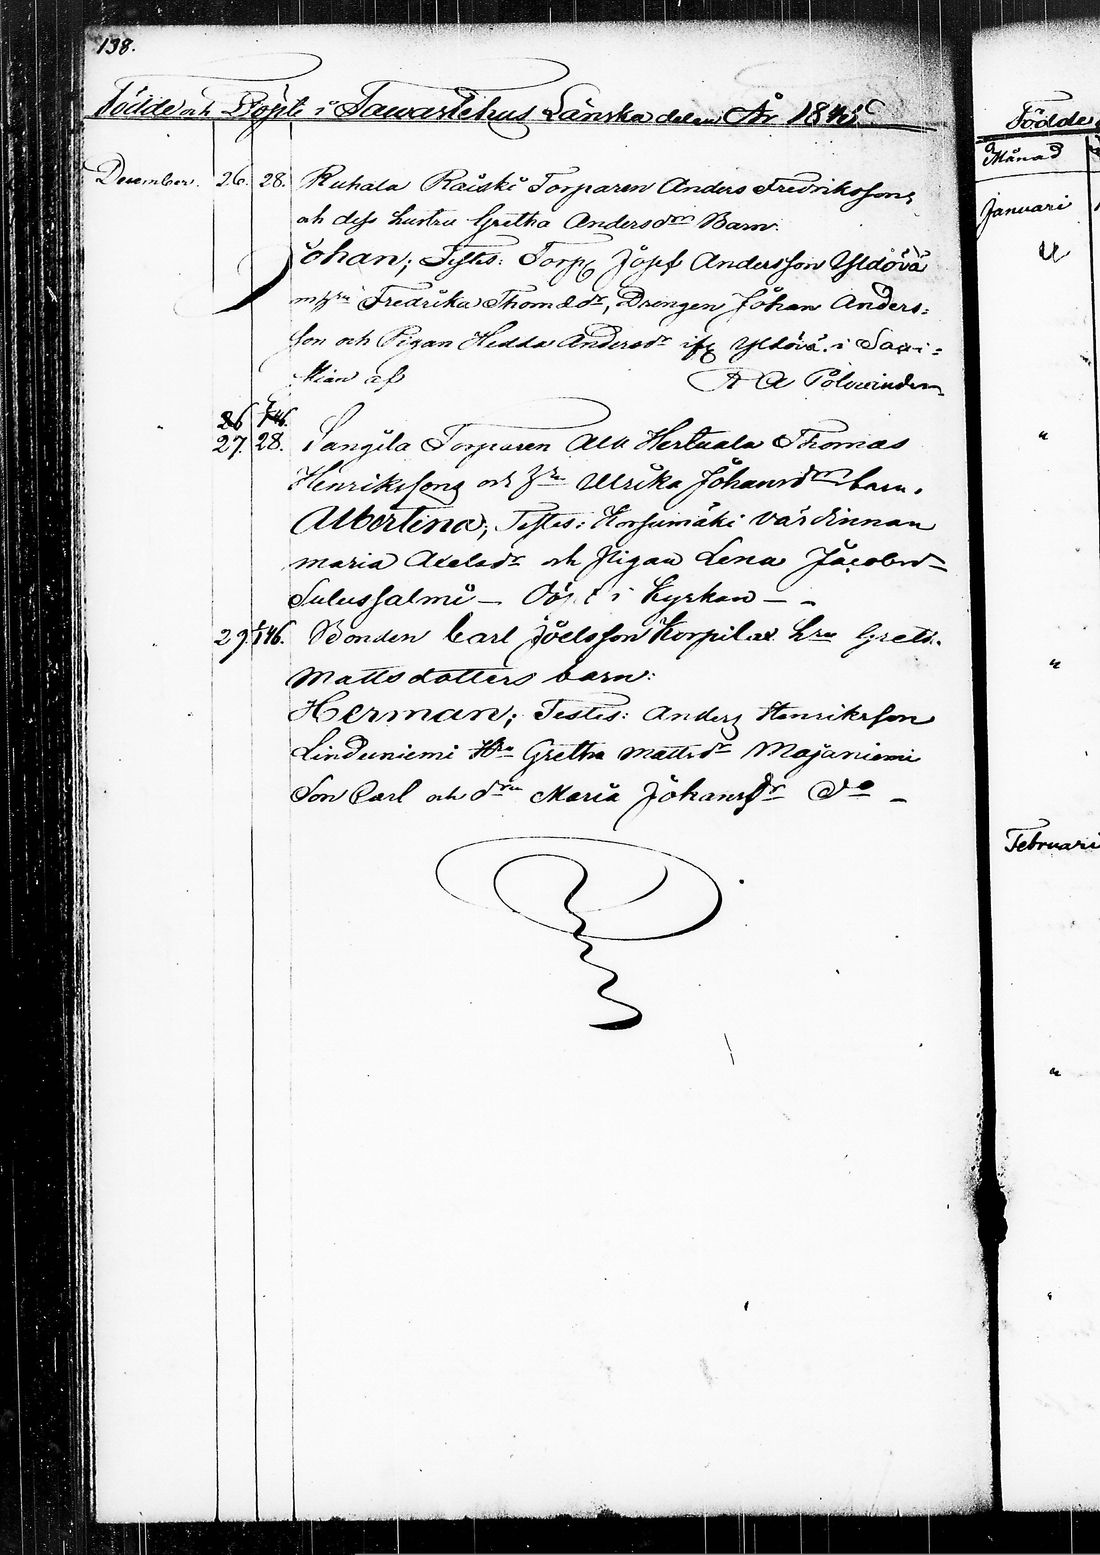 138.
Födde och Döpte i Tawastehus Länska delen År 1845
December. 26. 28. Ruhala Raiski Torparen Anders Fredrikssons
och dess hustru Gretha Andersdrs Barn.
Johan; Testes: Torp Josef Andersson Yldövä
Fredrika Thomasdr, Drengen Johan Anders:
son och Pigan Hedda Andersdr Yldövä i
af A A Polwinder
26 1/46.
27. 28. Sangila Torparen Ala Hertuala Thomas
Henrikssons och hru Ulrika Johansdrs barn.
Albertina; Testes: Korsumäki värdinnan
Maria Axelsdr och Pigan Lena Jacobsd
Sulussalmi — Döpt i Kyrkan — -
29. 1/46. Bonden Carl Joelsson Korpilax hru Greta
Mattsdotters barn:
Herman; Testes: Anders Henriksson
Linduniemi Hru Gretha Mattsdr Majaniemi
Son Carl och dru Maria Johansdr do —
Födde
Månad
Januari
"
"
"
Februari
"
"